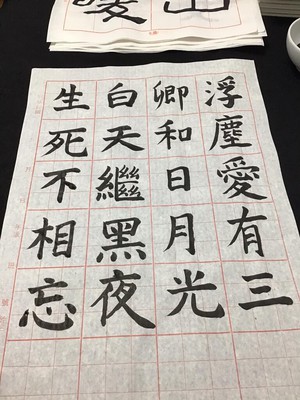 浮塵愛有三
卿和日月光
白天繼黑夜
生死不相忘